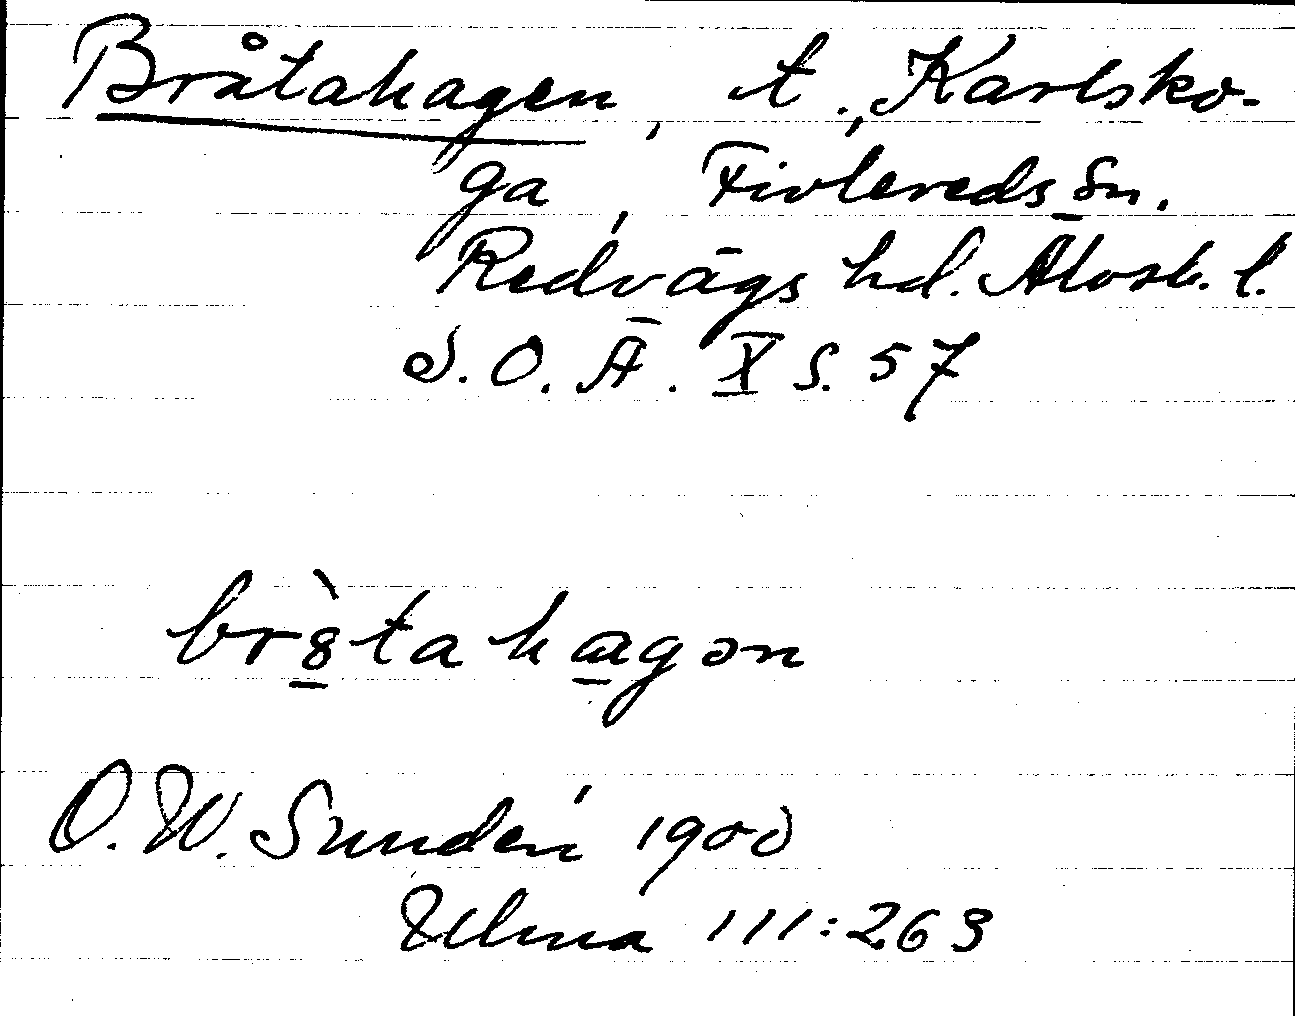 Bråtahagen, t., Karlsko-
ga, Fivlereds Sn.
Redvägs hd. Älvsb. l.
S. O. Ä. X S. 57
br8̠̀tahagən
O. W. Sundén 1900
Ulma 111:263